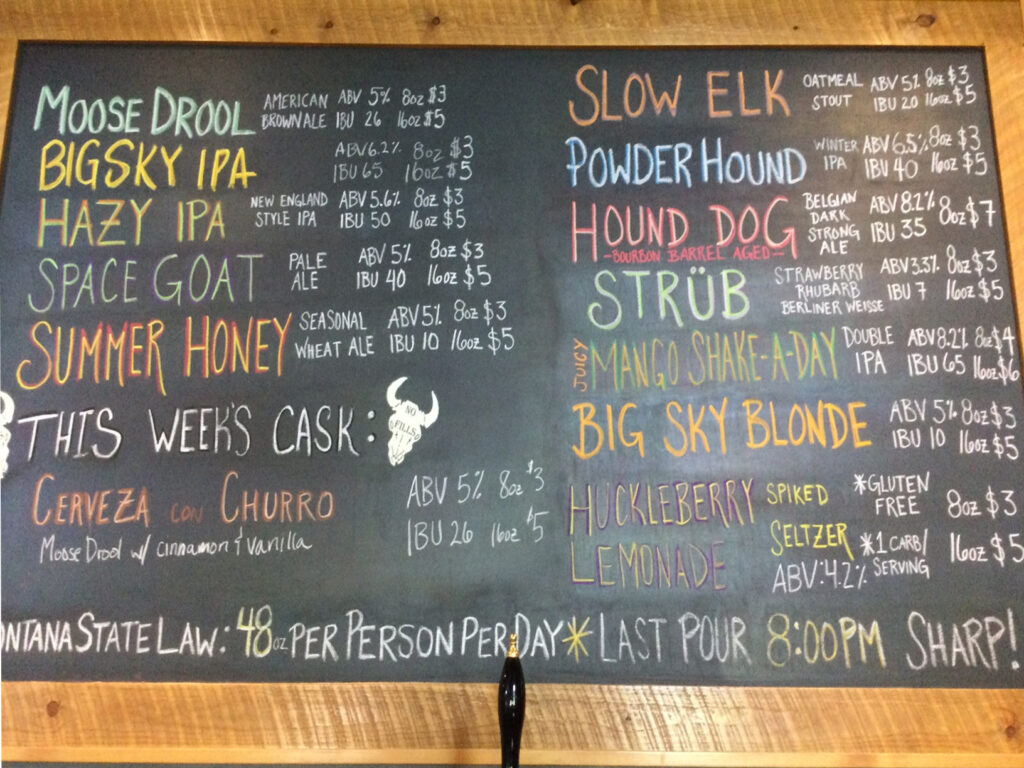 MOOSE DROOL AMERICAN ABV 5% 8oz $3
BROWN ALE IBU 26 16oz $5
BIG SKY IPA ABV 6.2% 8oz $3
IBU 65 16oz $5
HAZY IPA NEW ENGLAND ABV 5.6% 8oz $3
STYLE IPA IBU 50 16oz $5
SPACE GOAT PALE ABV 5% 8oz $3
ALE IBU 40 16oz $5
SUMMER HONEY SEASONAL ABV 5% 8oz $3
WHEAT ALE IBU 10 16oz $5
THIS WEEK'S CASK:
NO
REFILLS
CERVEZA CON CHURRO ABV 5% 8oz $3
Moose Drool w/ cinnamon & vanilla IBU 26 16oz $5
SLOW ELK OATMEAL ABV 5% 8oz $3
STOUT IBU 20 16oz $5
POWDER HOUND WINTER ABV 6.5% 8oz $3
IPA IBU 40 16oz $5
HOUND DOG BELGIAN ABV 8.2% 8oz $7
DARK
STRONG IBU 35
ALE
-BOURBON BARREL AGED-
STRÜB STRAWBERRY ABV 3.3% 8oz $3
RHUBARB IBU 7 16oz $5
BERLINER WEISSE
JUICY MANGO SHAKE-A-DAY DOUBLE ABV 8.2% 8oz $4
IPA IBU 65 16oz $6
BIG SKY BLONDE ABV 5% 8oz $3
IBU 10 16oz $5
HUCKLEBERRY SPIKED *GLUTEN FREE 8oz $3
LEMONADE SELTZER *1 CARB/SERVING 16oz $5
ABV: 4.2%
ONTANA STATE LAW: 48oz PER PERSON PER DAY * LAST POUR 8:00PM SHARP!